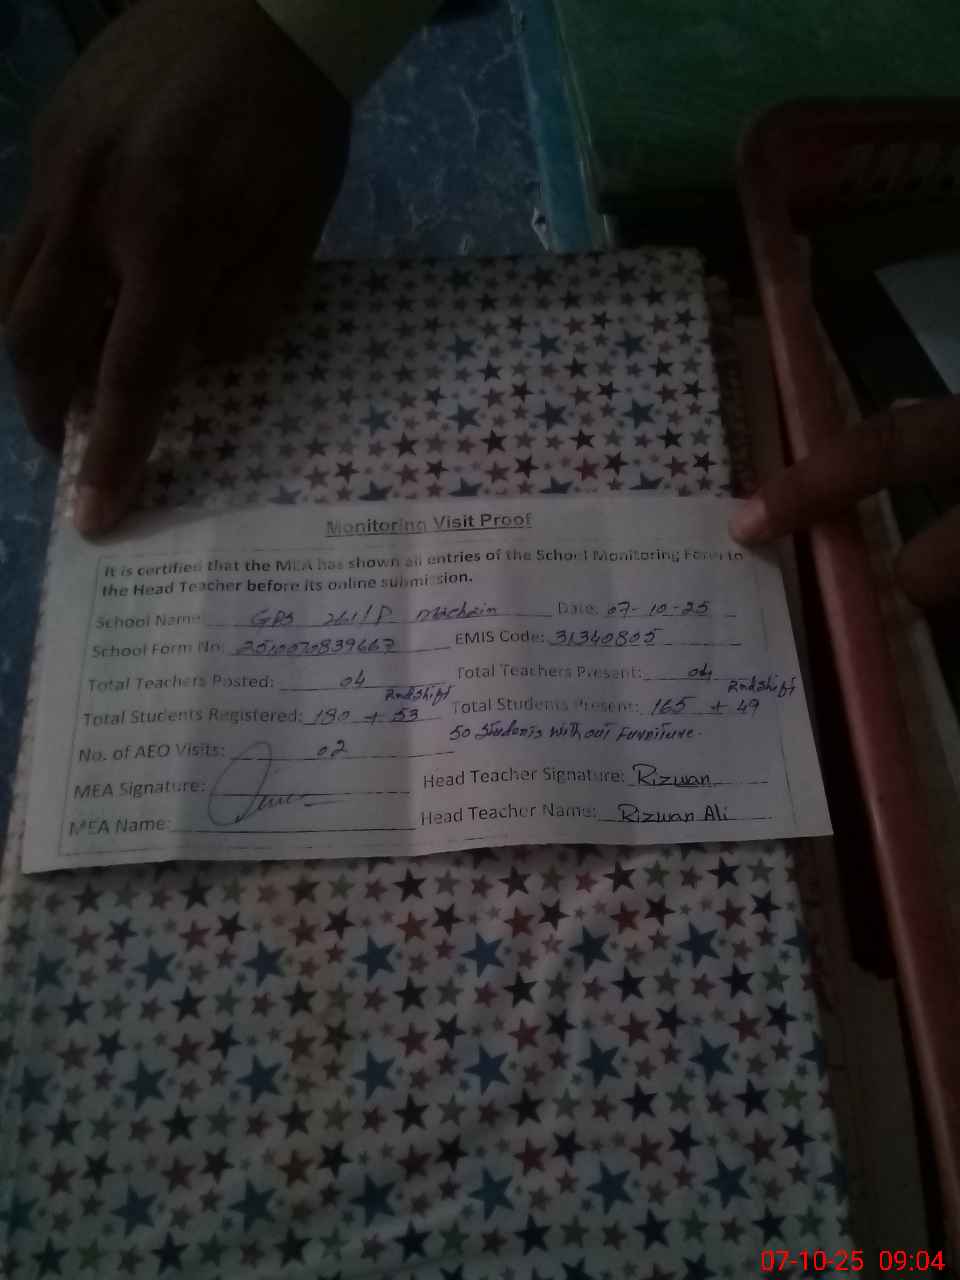 Monitoring Visit Proof
It is certified that the MEA has shown all entries of the School Monitoring Form to
the Head Teacher before its online submission.
School Name: GPS 261/P Date: 07-10-25
School Form No: EMIS Code: 31340805
Total Teachers Posted: 04 Total Teachers Present: 04
2nd Shift 2nd Shift
Total Students Registered: 180 + 53 Total Students Present: 165 + 49
50 Students without Furniture.
No. of AEO Visits: 02
MEA Signature: Head Teacher Signature: Rizwan
MEA Name: Head Teacher Name: Rizwan Ali
07-10-25 09:04